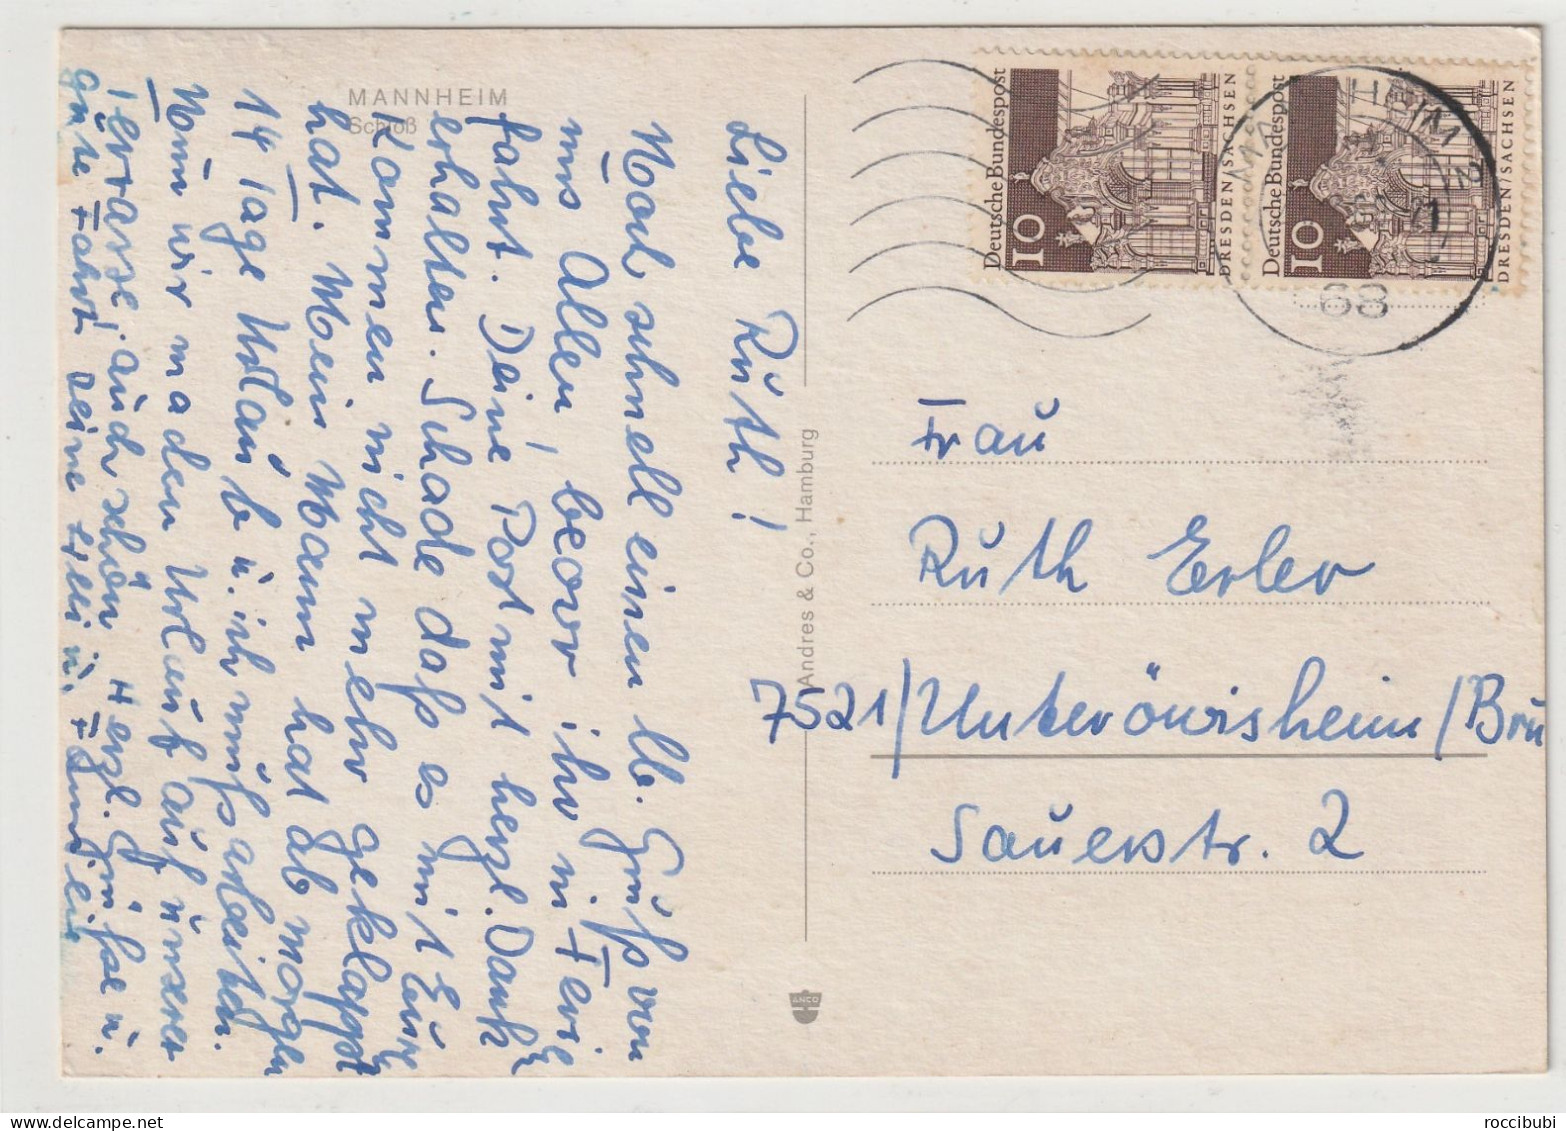 MANNHEIM
Schloß
Liebe Ruth!
Noch schnell einen lb. Gruß von
uns Allen, bevor ihr in Ferie
fahrt. Deine Post mit herzl. Dank
erhalten. Schade daß es mit Eurem
Kommen nicht mehr geklappt
hat. Mein Mann hat ab morgen
14 Tage Urlaub u. ich muß arbeiten.
Nun wir machen Urlaub auf unserer
Terrasse, auch schön. Herzl. Grüße u.
gute Fahrt deine Lilli u. Familie
Andres & Co., Hamburg
ANCO
Deutsche Bundespost
10
DRESDEN/SACHSEN
Deutsche Bundespost
10
DRESDEN/SACHSEN
HEIM 2
68
Frau
Ruth Erler
7521/Unteröwisheim/Bru
Sauerstr. 2
roccibubi